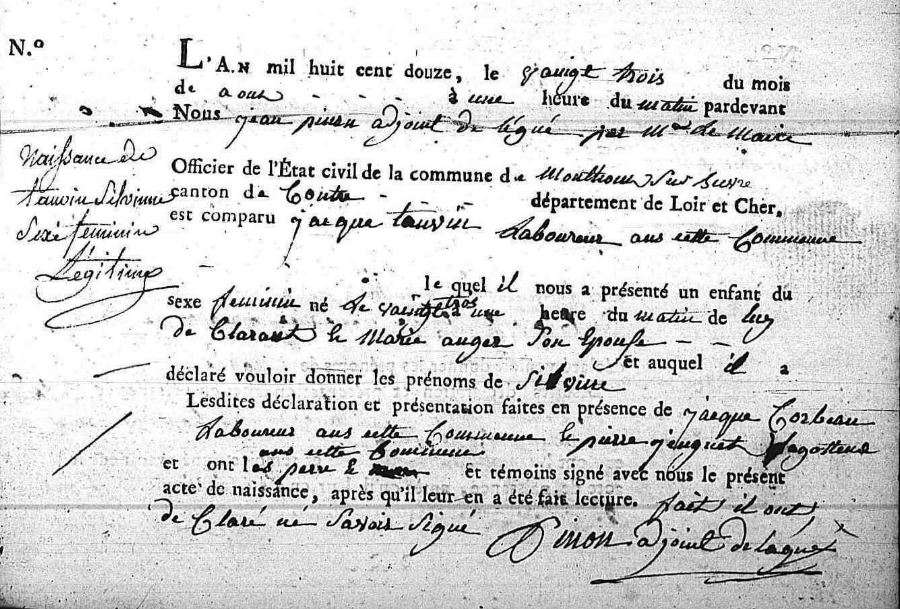 N.º
L'AN mil huit cent douze, le vaingt trois du mois
de aout à une heure du matin pardevant
Nous jean pinon adjoint de légué par Mr Le Maire
Officier de l'État civil de la commune de Monthou sur bievre
canton de Contre département de Loir et Cher,
est comparu jacque tauvin Laboureur ans cette Commune
le quel il nous a présenté un enfant du
sexe feminin né Le vaingt trois a une heure du matin de luy
de Clarant le Marie auger Son Epouse
et auquel il a
déclaré vouloir donner les prénoms de Silvine
Lesdites déclaration et présentation faites en présence de jacque Corbeau
Laboureur ans cette Commune le pierre
ans cette Commune
et ont les perre le et témoins signé avec nous le présent
acte de naissance, après qu'il leur en a été fait lecture. fait il ont
de Claré né Savoir Signé
Pinon adjoint delagué
Naissance de
tauvin Silvinne
Sexe feminin
Légitime